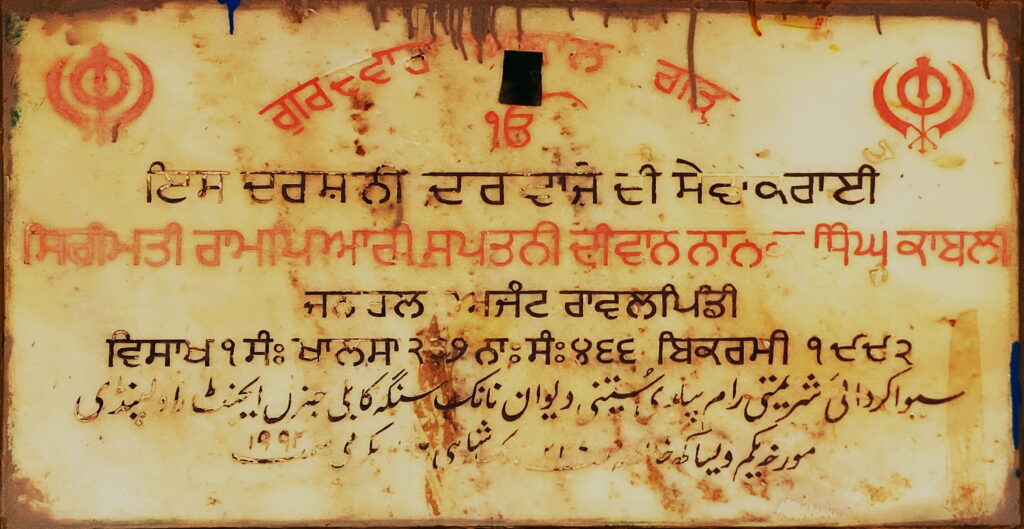 ਗੁਰਦਵਾਰਾ
ੴ
ਇਸ ਦਰਸ਼ਨੀ ਦਰਵਾਜੇ ਦੀ ਸੇਵਾ ਕਰਾਈ
ਸਿਰੀਮਤੀ ਰਾਮਪਿਆਰੀ ਸੁਪਤਨੀ ਦੀਵਾਨ ਨਾਨਕ ਸਿੰਘ ਕਾਬਲੀ
ਜਨਰਲ ਅਜੰਟ ਰਾਵਲਪਿੰਡੀ
ਵਿਸਾਖ ੧ ਸੰਃ ਖਾਲਸਾ ਨਾਃ ਸੰਃ ੪੬੬ ਬਿਕਰਮੀ ੧੯੯੨
سیوا کردائی شریمتی رام پیاری سپتنی دیوان نانک سنگھ کابلی جنرل ایجنٹ راولپنڈی
مورخہ یکم ویساکھ شاہی ۱۹۹۲